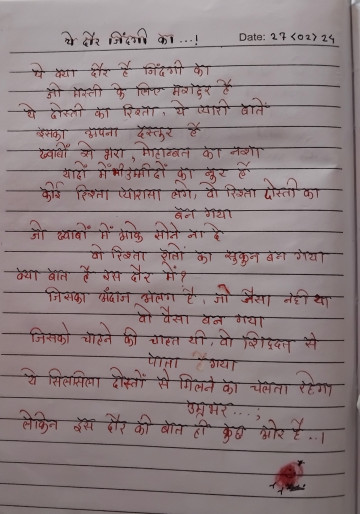 ये दौर जिंदगी का...!
Date: 27/02/24
ये क्या दौर है जिंदगी का
जो मस्ती के लिए मशहूर है
ये दोस्ती का रिश्ता, ये प्यारी बातें
इसका अपना दस्तूर है
ख्वाबों से भरा, मोहब्बत का नशा
यादों में भी उम्मीदों का नूर है
कोई रिश्ता प्यारासा लगे, वो रिश्ता दोस्ती का
बन गया
जो ख्वाबों में आके सोने ना दे
वो रिश्ता रातों का सुकून बन गया
क्या बात है इस दौर में?
जिसका अंदाज अलग है, जो जैसा नही था
वो वैसा बन गया
जिसको चाहने की चाहत थी, वो शिद्दत से
पाता गया
ये सिलसिला दोस्तों से मिलने का चलता रहेगा
उम्रभर...,
लेकिन इस दौर की बात ही कुछ और है..!